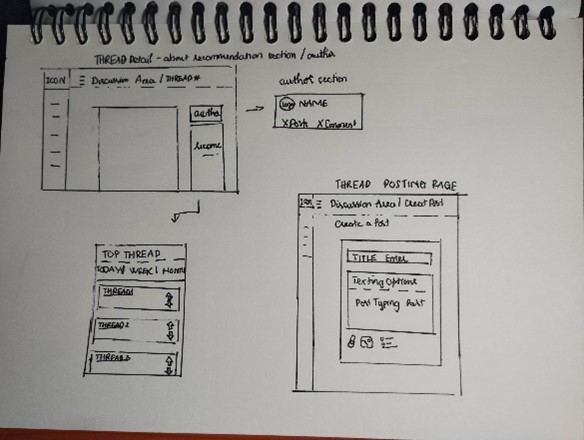 THREAD Detail - about recommendation section / author
ICON
Discussion Area / THREAD#
author
author section
NAME
X Posts X Comment
TOP THREAD
TODAY/ WEEK/ Month
THREAD1
THREAD 2
THREAD 3
THREAD POSTING PAGE
Discussion Area / Creat Post
Create a Post
TITLE Enter
Texting Options
Post Typing Part